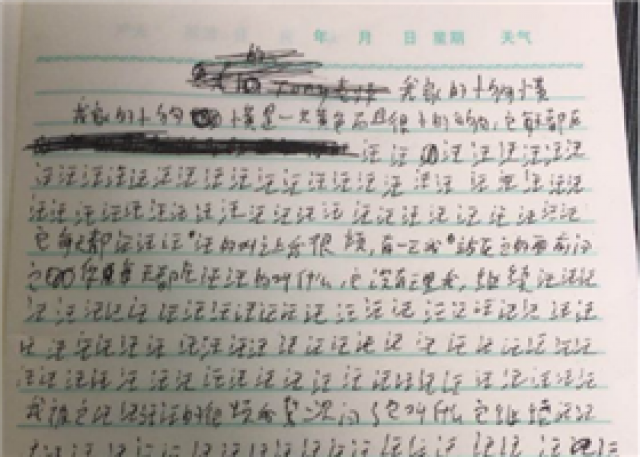 年 月 日 星期 天气
我家的小狗小黄
我家的小狗小黄是一只黄色而且很 的狗狗，它每天都在
汪汪汪汪汪汪汪汪
汪汪汪汪汪汪汪汪汪汪汪汪汪汪汪汪汪汪汪汪汪
汪汪汪汪汪汪汪汪汪汪汪汪汪汪汪汪汪汪汪汪汪汪
它每天都汪汪汪汪的叫让我很烦，有一天我站在它的面前问
它你每天都在汪汪的叫什么，它没有理我，继续汪汪汪
汪汪汪汪汪汪汪汪汪汪汪汪汪汪汪汪汪汪汪汪汪汪
汪汪汪汪汪汪汪汪汪汪汪汪汪汪汪汪汪汪汪汪汪
汪汪汪汪汪汪汪汪汪汪汪汪汪汪汪汪汪汪汪汪汪汪
我被它汪汪汪汪的很烦我又一次问了它叫什么它继续汪汪
汪汪汪汪汪汪汪汪汪汪汪汪汪汪汪汪汪汪汪汪